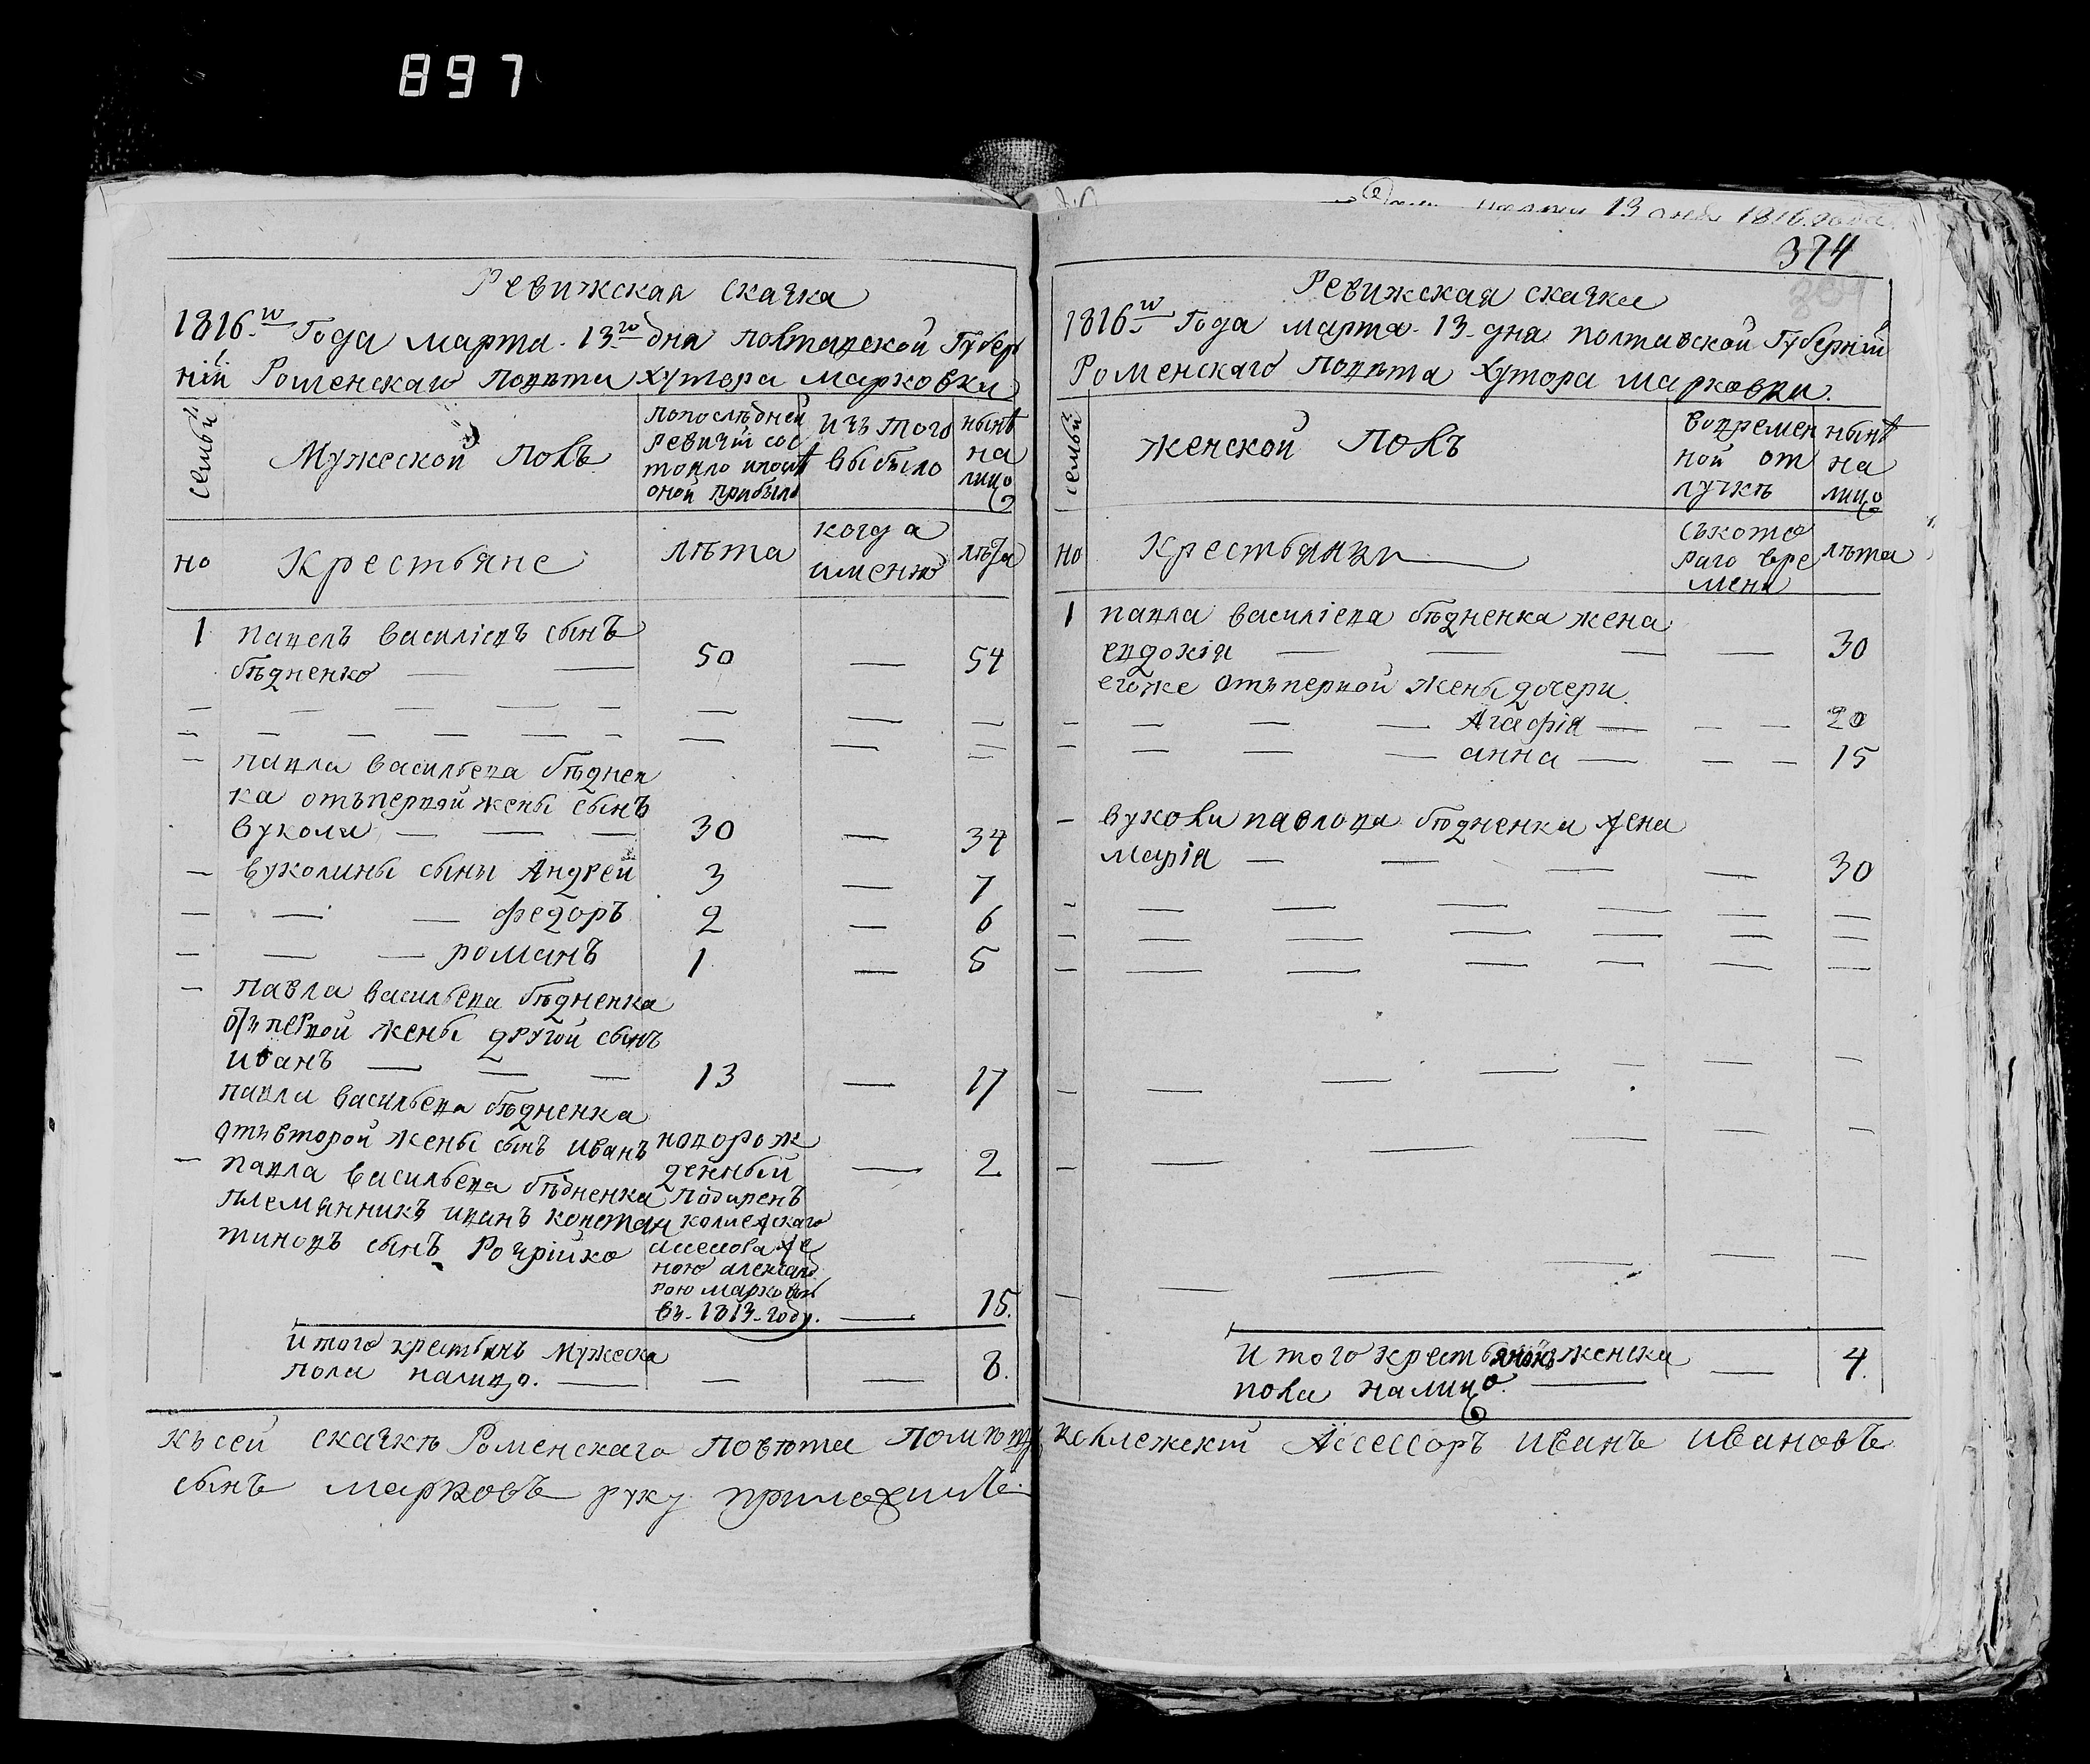 897
13 1816 года
374
Ревижская скаска
1816го Года марта 13го дня полтавской Губер
ній Роменскаго Повѣта Хутора Марковки
семьи
Мужеской Полъ
Попослѣдней
ревизіи сос
тояло ипослѣ
оной прибыло
изъ того
выбыло
нынѣ
на
лицо
но
Крестьяне
лѣта
когда
именно
лѣта
1 Павелъ Василіевъ сынъ
бѣдненко — — 50 — 54
— — — — — — — —
— — — — — — — — —
— Павла Васильева бѣднен
ка отъпервой жены сынъ
Вукола — — — 30 — 34
— Вуколины сыны Андрей 3 — 7
— — — федоръ 2 — 6
— — — романъ 1 — 5
— Павла Васильева бѣдненка
отъ первой жены другой сынъ
иванъ — — — 13 — 17
Павла Васильева бѣдненка
отъвторой жены сынъ иванъ
новорож
денный — 2
— Павла Васильева бѣдненка
племянникъ иванъ констан
тиновъ сынъ Роурійко
Подаренъ
колле жскаго
ною александ
рою марковою
въ 1813 году. — 15.
Итого крестьянъ Мужеска
пола налицо. — — — 8.
Къ сей скаскѣ Роменскаго Повѣта Помѣщ
сынъ Марковъ руку приложилъ.
Ревижская скаска
1816го Года марта 13 дня полтавской Губерній
Роменскаго Повѣта Хутора Марковки.
семьи
женской Полъ
вовремен
ной от
лучкѣ
нынѣ
на
лицо
но
Крестьянки
съкото
раго вре
мени
лѣта
1 павла Василіева бѣдненка жена
евдокія — — — — 30
егоже отъпервой жены дочери
— — — — Агафія — — — 20
— — — — анна — — — 15
— Вуколи павлова бѣдненка жена
марія — — — — 30
— — — — — — —
— — — — — — —
— — — — — — —
— — — — — — —
— — — — — —
— — — — — —
Итого крестьянокъ женска
пола налицо. — — 4.
Коллежскій Ассессоръ Иванъ Ивановъ